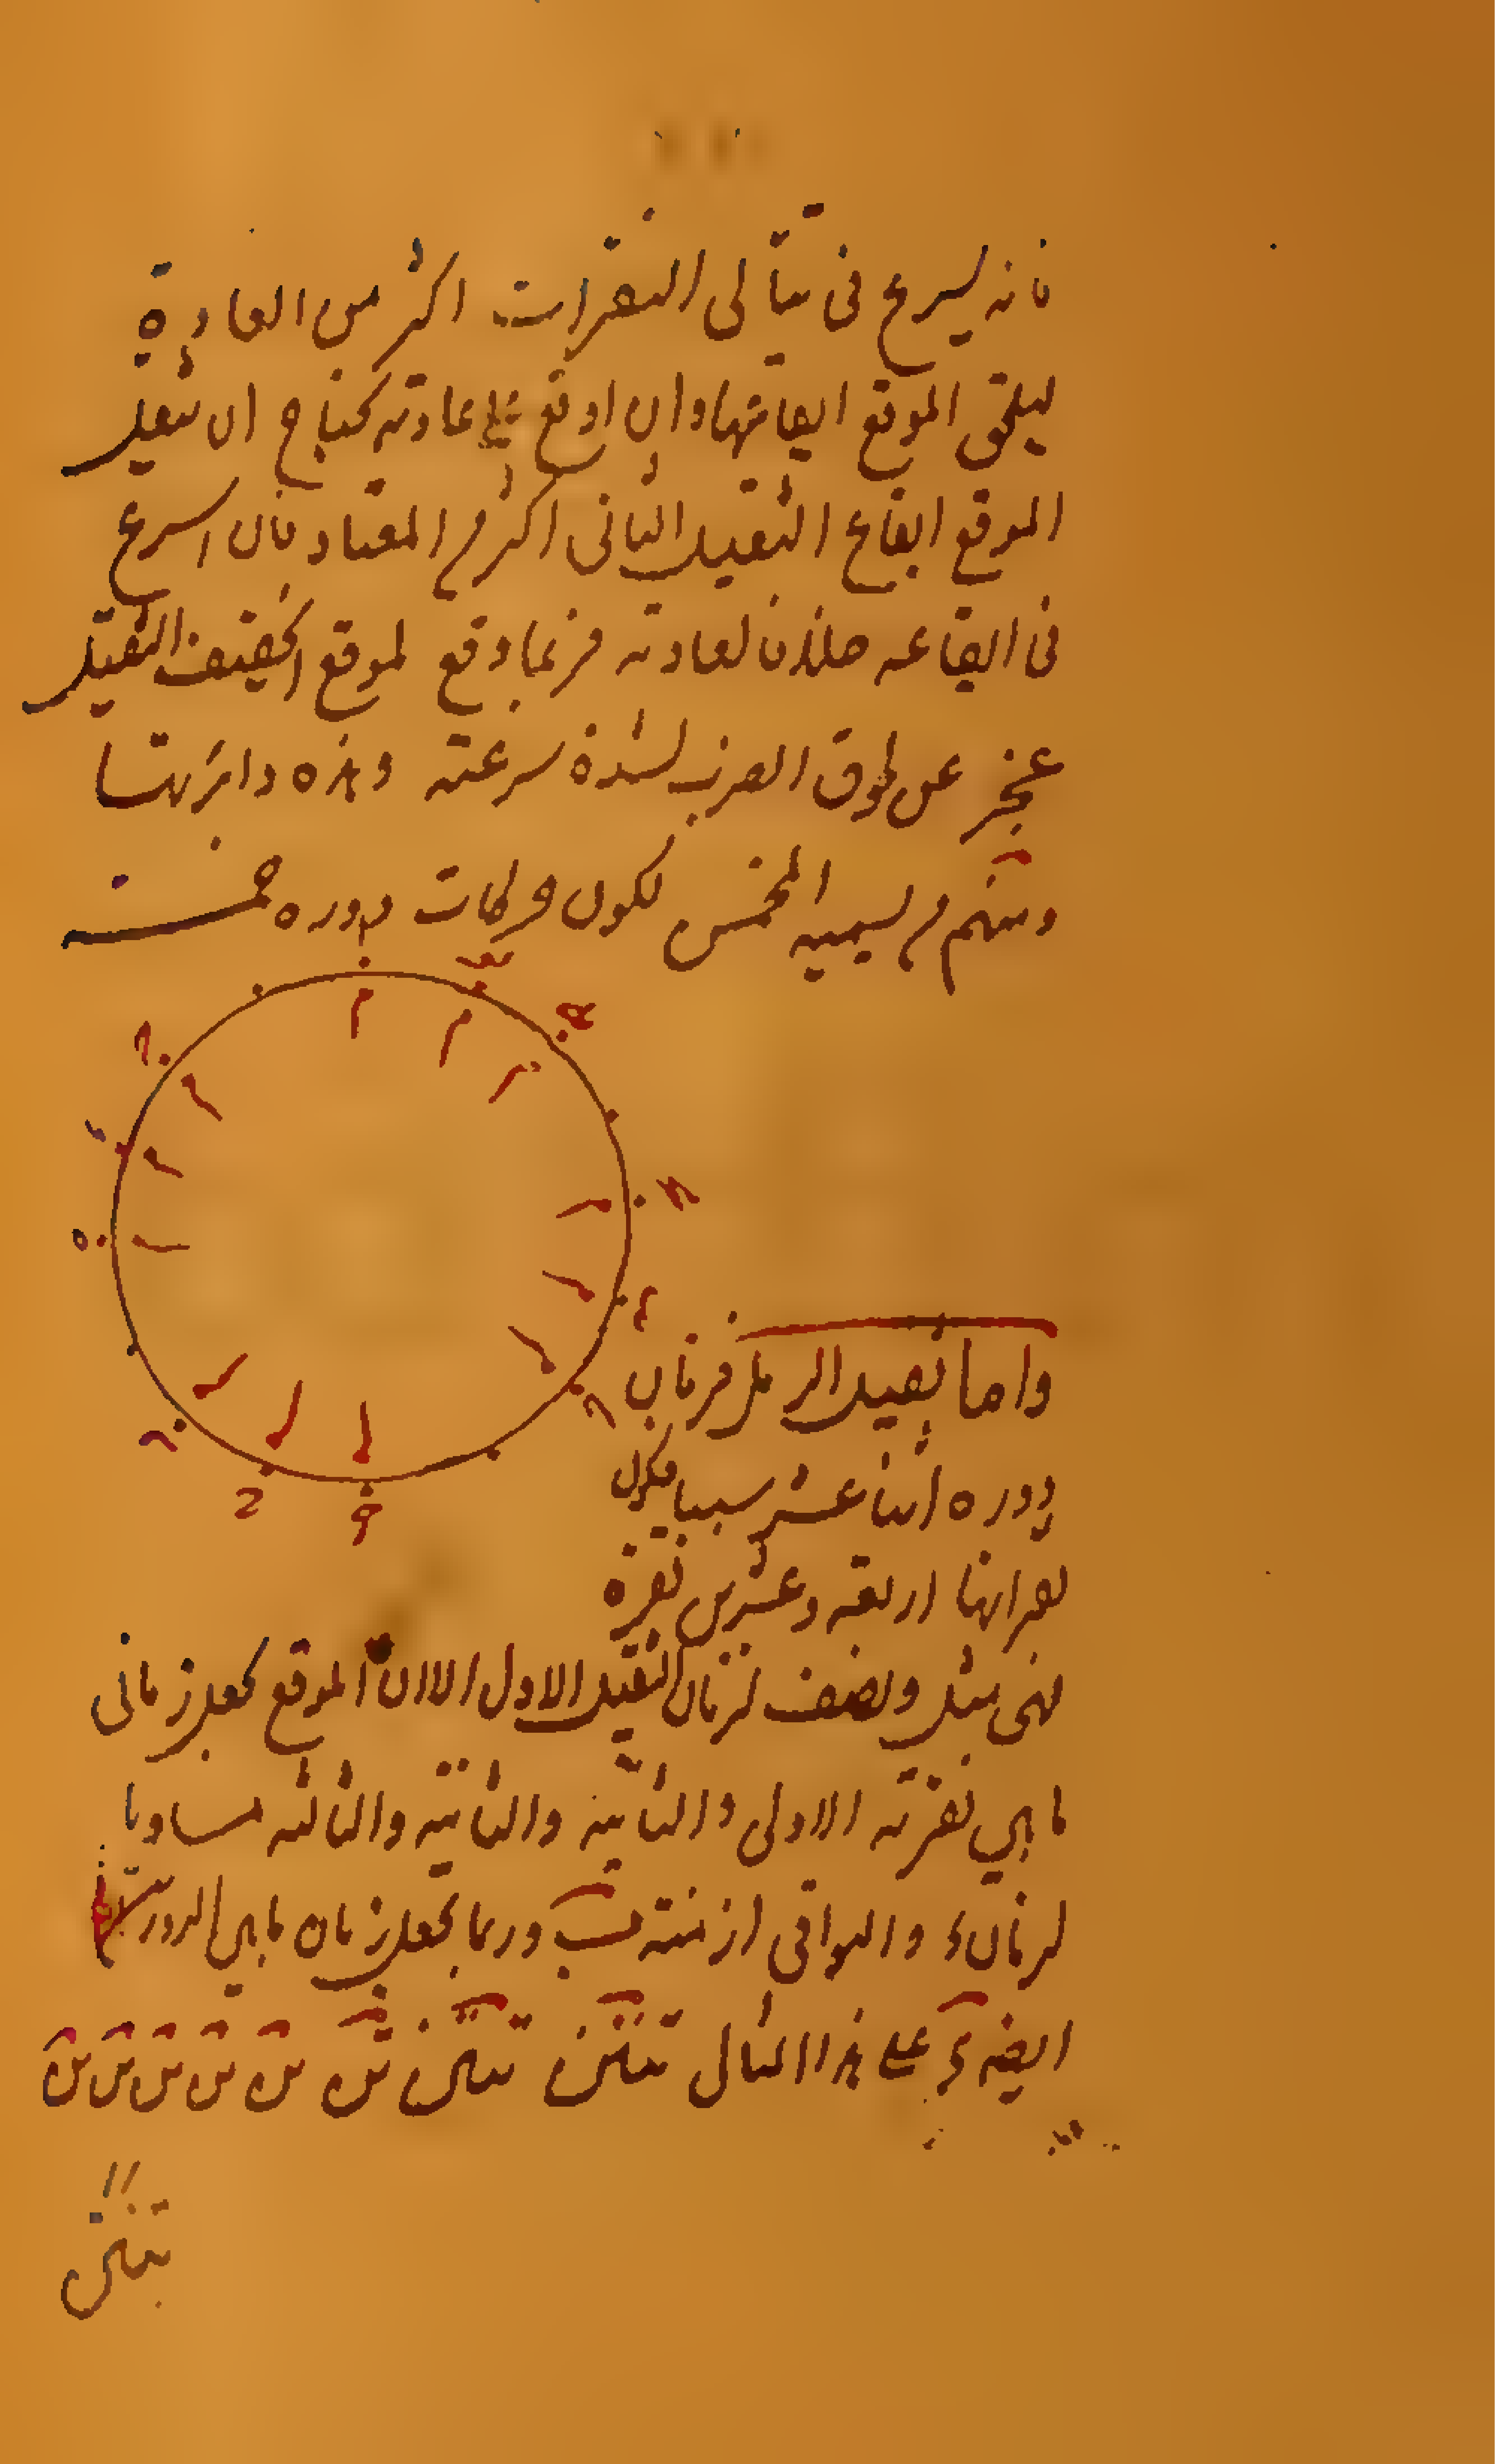 فانه يسرع فى تتالى النقرات اكثر من العادة
ليلحق الموقع ايقاعها وان اوقع على عادته يحتاج ان يثقل
الموقع ايقاع الثقيل الثانى اكثر من المعتاد فان اسرع
فى ايقاعه خلافا لعادته فربما وقع لموقع الخفيف الثقيل
عجز عن طوق الضرب لشدة سرعته وهذه دائرتها
ومنهم من يسميه المخمس لكون حركات دوره خمسة
واما ثقيل الرمل فزمان
دوره اثنا عشر سببا فيكون
نقراتها اربعة وعشرين نقرة
فهى مثل ونصف لزمان الثقيل الاول الا ان الموقع يجعل زمانى
ما بين نقرته الاولى والثانية والثانية والثالثة مساويا
لزمان والبواقى ازمنته ب وربما يجعل زمان ما بين الدورين
ايضه على هذا المثال تنتن تنتن تن تن تن تن تن تن
تنتن